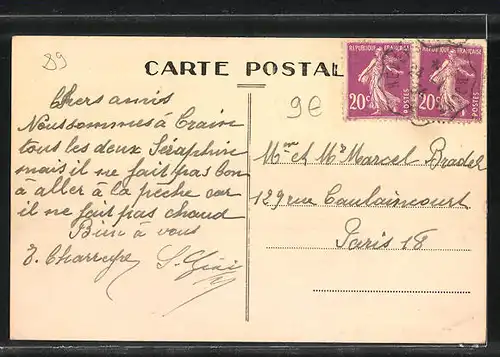 89
CARTE POSTALE
REPUBLIQUE FRANÇAISE
20c POSTES
REPUBLIQUE FRANÇAISE
20c POSTES
9e
Chers amis
Nous sommes à Crain
tout les deux Séraphin
mais il ne fait pas bon
à aller à la pêche car
il ne fait pas chaud
Bien à vous
Mme et Mr Marcel Bradel
129 rue Caulaincourt
Paris 18